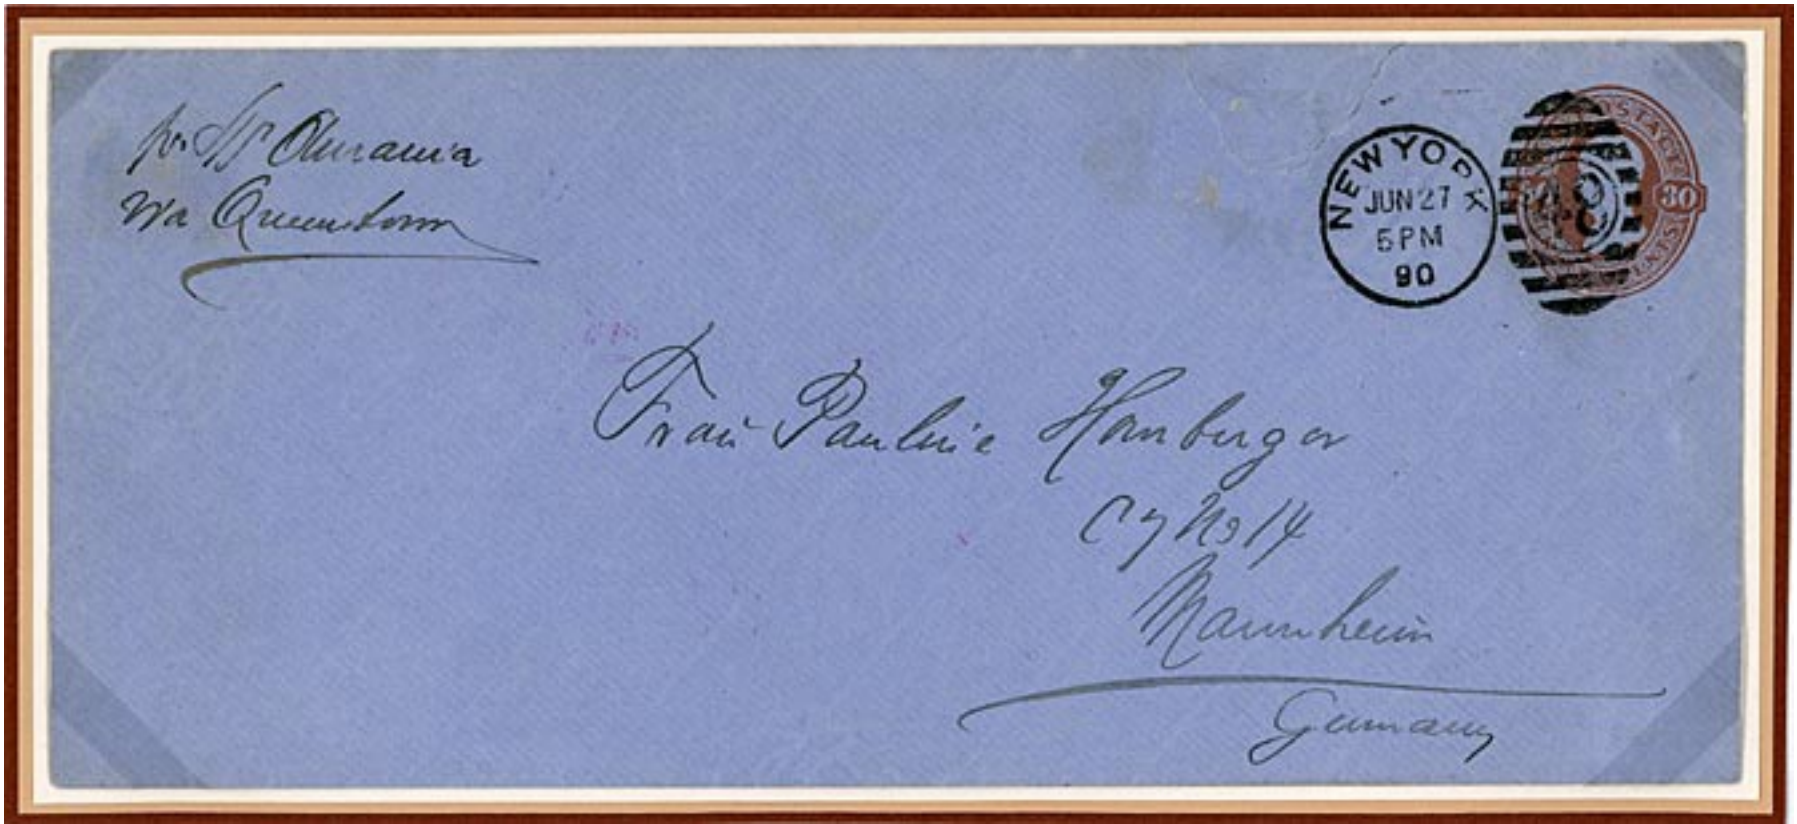 per SS Aurania
via Queenstown
POSTAGE
30
CENTS
NEW YORK
JUN 27
5 PM
90
Frau Pauline Homburger
C 7 No 14
Mannheim
Germany